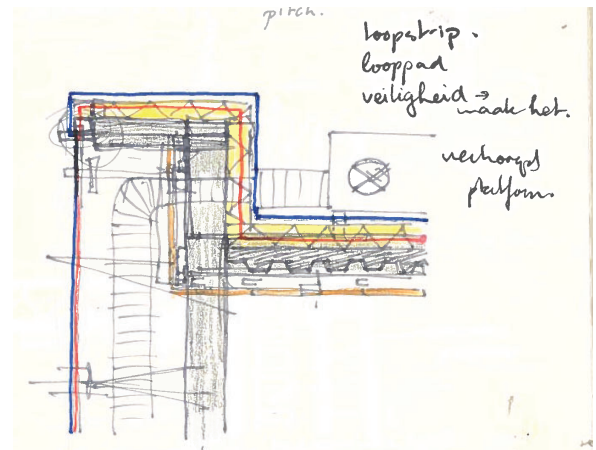 pitch.
loopstrip.
looppad
veiligheid →
maak het.
verhoogd
platform.